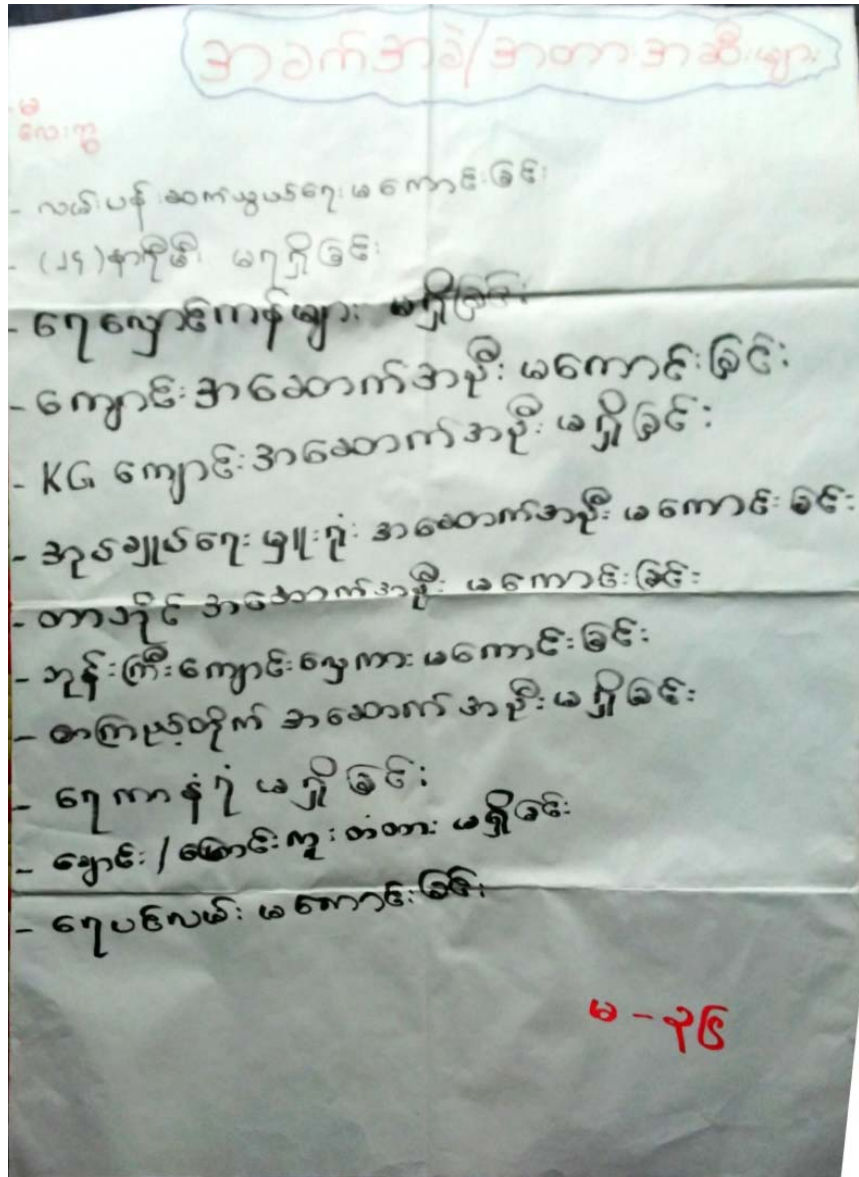 အခက်အခဲ/အတားအဆီးများ
မ
လေးကွ
- လမ်းပန်းဆက်သွယ်ရေးမကောင်းခြင်း
- (၂၄)နာရီမီး မရရှိခြင်း
- ရေလှောင်ကန်များ မရှိခြင်း
- ကျောင်းအဆောက်အဦး မကောင်းခြင်း
- KG ကျောင်းအဆောက်အဦး မရှိခြင်း
- အုပ်ချုပ်ရေးမှူးရုံး အဆောက်အဦး မကောင်းခြင်း
- တာဘိုင် အဆောက်အဦး မကောင်းခြင်း
- ဘုန်းကြီးကျောင်းလှေကားမကောင်းခြင်း
- စာကြည့်တိုက် အဆောက်အဦးမရှိခြင်း
- ရေကာနံရံ မရှိခြင်း
- ချောင်း/မြောင်းကူးတံတား မရှိခြင်း
- ရေပင်လမ်း မကောင်းခြင်း